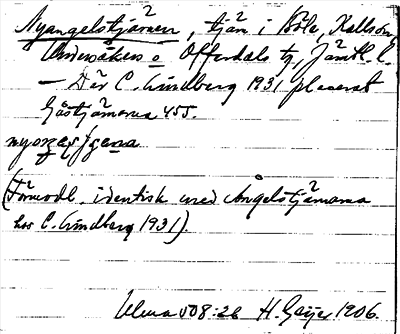 Nyångelstjärnen, tjärn i Böle, Kallsom,
Undersåkers o Offerdals tg, Jämtl. l.
— Där C. Lindberg 1931 placerat
Gåstjärnarna 455.
(Förmodl. identisk med Ångelstjärnarna
hos C. Lindberg 1931).
Ulma 508:26 H. Geijer 1906.